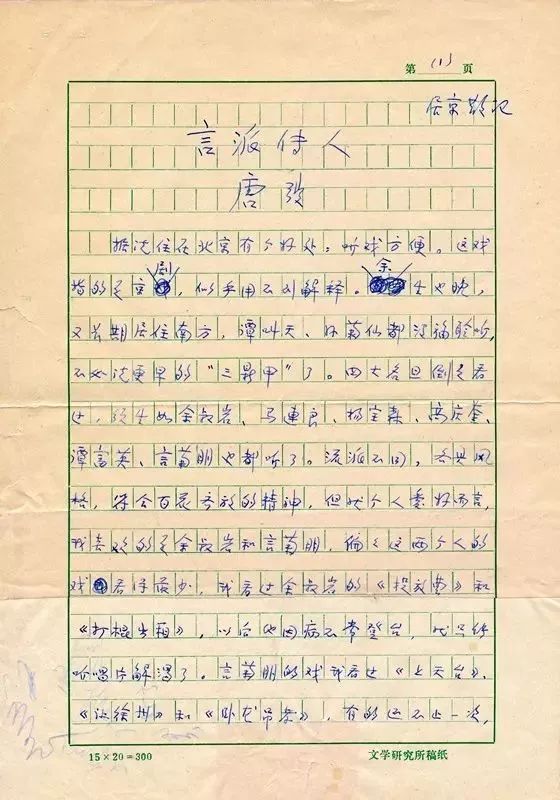 第 (1) 页
居京散记
言派传人
唐弢
据说住在北京有个好处：听戏方便。这戏
指的是京剧，似乎用不到解释。余生也晚，
又长期居住南方，谭叫天、孙菊仙都没福聆听，
不必说更早的“三鼎甲”了。四大名旦倒是看
过，须生如余叔岩、马连良、杨宝森、高庆奎、
谭富英、言菊朋也都听了。流派不同，各具风
格，符合百花齐放的精神，但就个人爱好而言，
我喜欢的是余叔岩和言菊朋，偏々这两个人的
戏看得最少，我看过余叔岩的《捉放曹》和
《打棍出箱》，以后他因病不常登台，我只
听唱片解渴了。言菊朋的戏我看过《上天台》、
《让徐州》和《卧龙吊孝》，有的还不止一次，
15×20=300 文学研究所稿纸